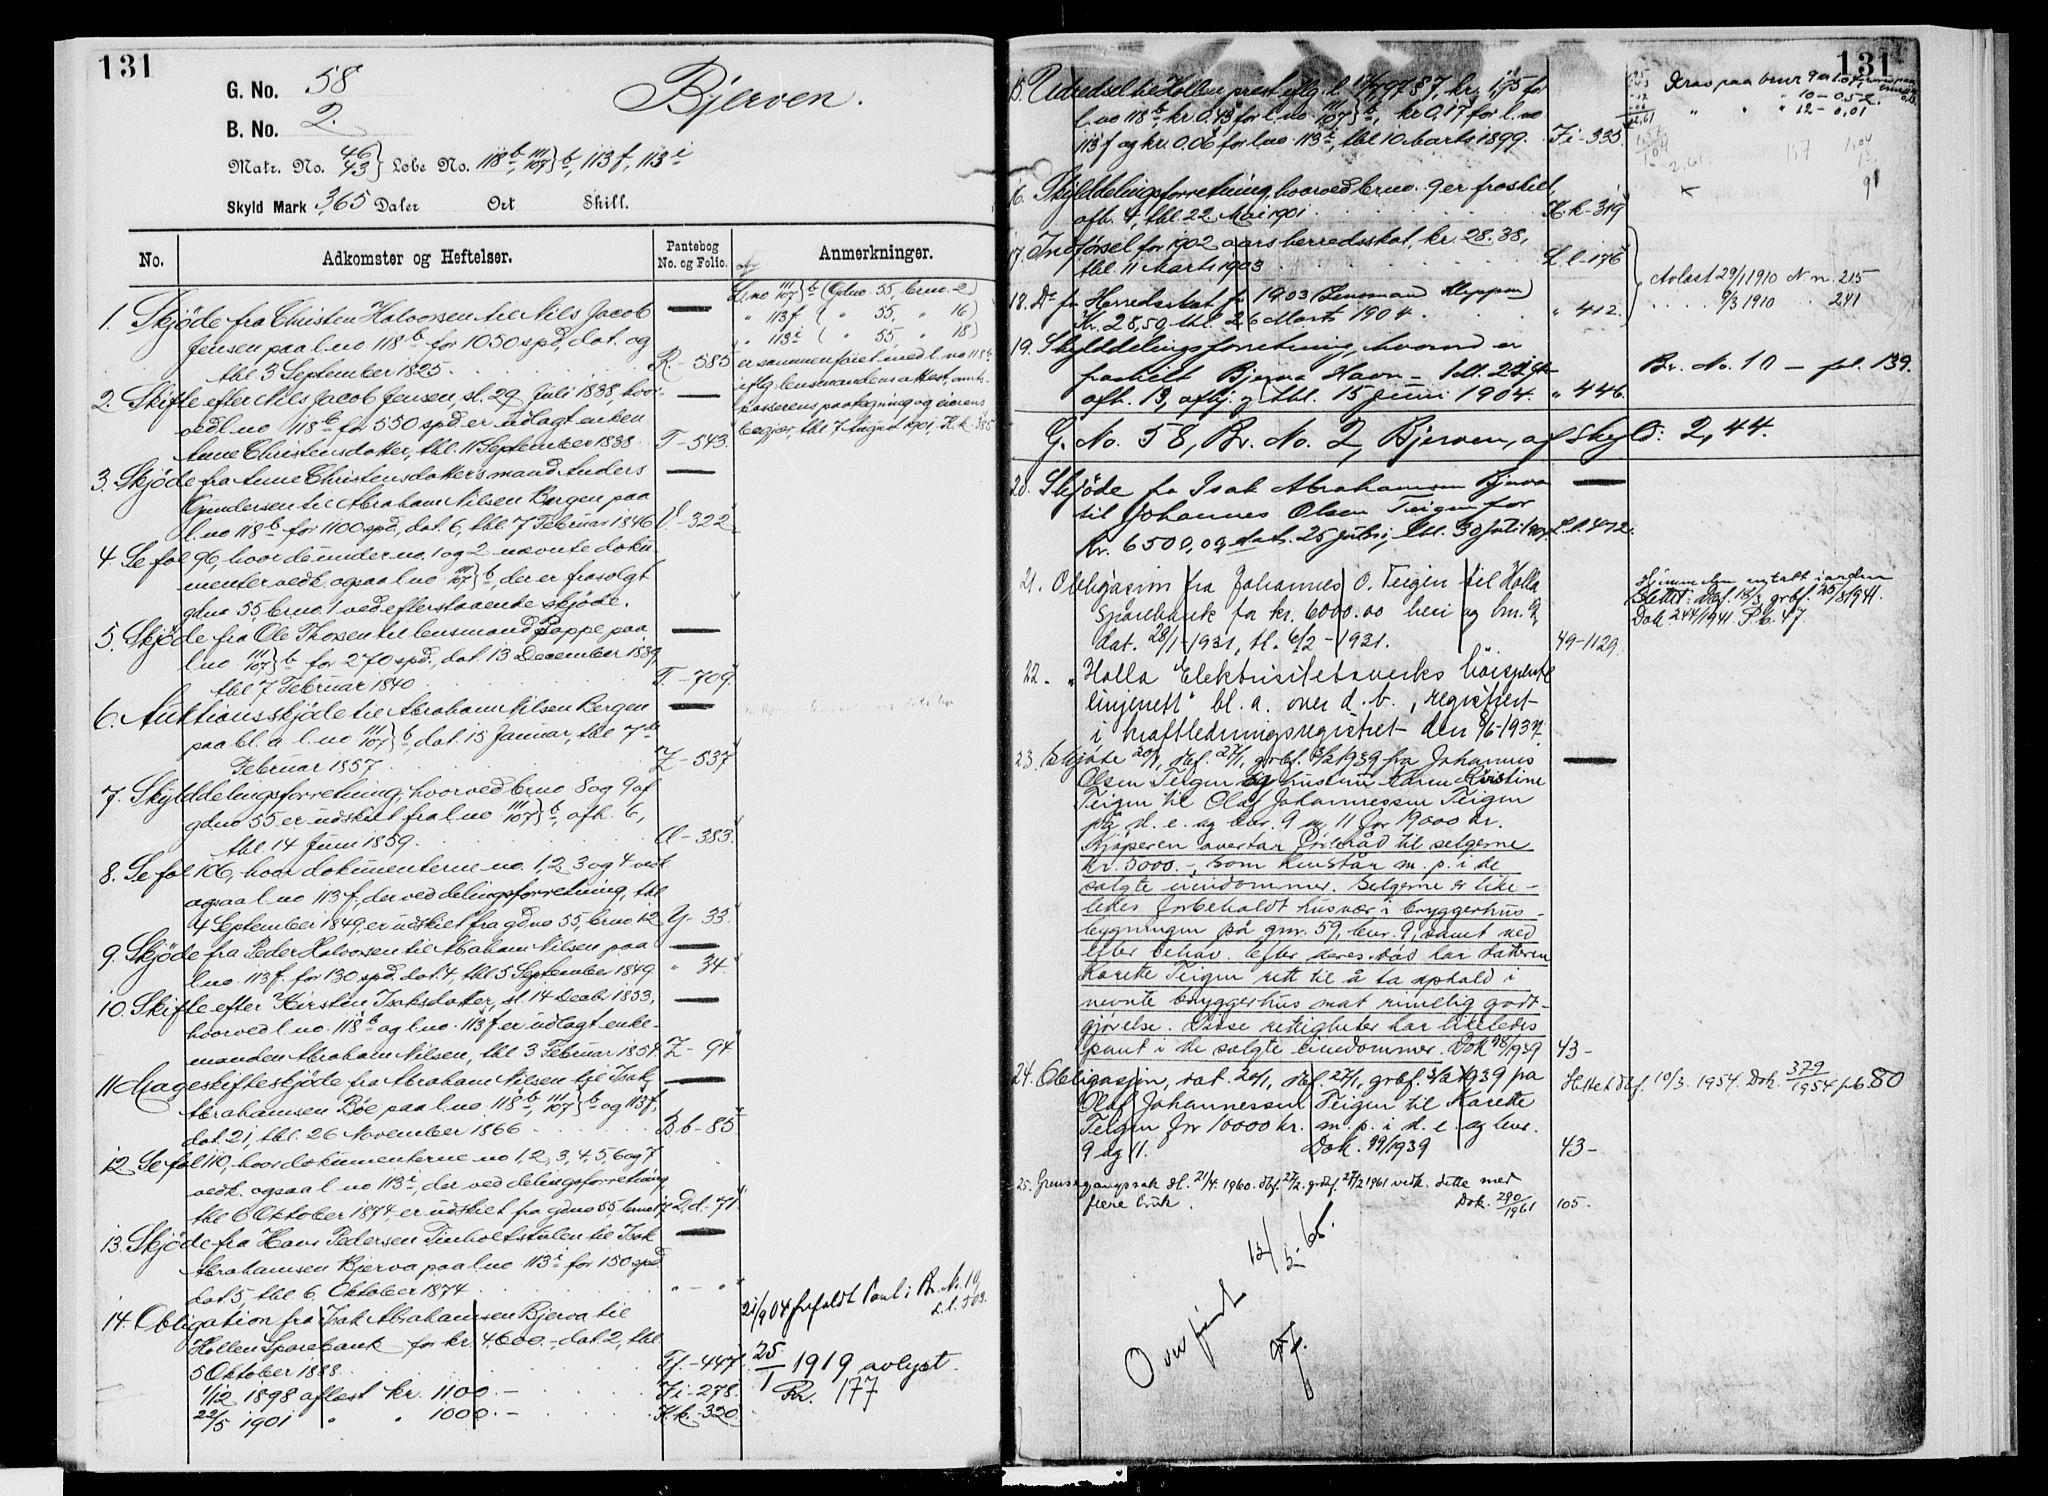 131
G. No. 58
Bjerven.
B. No. 2.
Matr. No. 46/43} Løbe No. 118b, 111/107}b, 113f, 113i
Skyld Mark 3,65 Daler Ort Skill.
No.
Adkomster og Heftelser.
Pantebog No. og Folio.
Anmerkninger.
1. Skjöde fra Christen Halvorsen til Nils Jacob
Jensen paa l.no 118b for 1050 spd, dat. og
tbl 3 September 1825. R - 585
L.no 111/107}b (Gdno 55, brno. 2)
" 113f ( " 55, " 16)
" 113i ( " 55, " 18)
er sammenføiet med l.no 118b
iflg. lensmandens attest, amts-
kasserens paategning og eierens
begjær., tbl 7 August 1901, K.k - 385
2. Skifte efter Nils Jacob Jensen, sl. 29 Juli 1838, hvor-
ved l.no 118b for 550 spd er udlagt enken
Anne Christensdatter, tbl. 11 September 1838. T - 543.
3. Skjöde fra Anne Christensdatters mand Anders
Gundersen til Abraham Nilsen Bergen paa
l.no 118b for 1100 spd, dat. 6, tbl. 7 Februar 1846 V - 322
4. Se fol 96, hvor de under no. 1 og 2 nævnte doku-
menter vedk. ogsaa l.no 111/107}b, der er frasolgt
gdno 55, brno. 1 ved efterstaaende skjöde.
5. Skjöde fra Ole Thorsen til lensmand Pappe paa
l.no 111/107}b for 270 spd., dat. 13 December 1839,
tbl 7 Februar 1840 T. - 709.
6. Auktionsskjöde til Abraham Nilsen Bergen
paa bl. a l.no 111/107}b, dat. 15 Januar, tbl 7de
Februar 1857. Z - 537
7. Skylddelingsforretning, hvorved brno 8 og 9 af
gdno 55 er udskilt fra l.no 111/107}b, afh. 6,
tbl. 14 Juni 1859. A - 383.
8. Se fol 106, hvor dokumenterne no. 1, 2, 3 og 4 vedk
ogsaa l.no 113f, der ved delingsforretning, tbl
4 September 1849, er udskilt fra gdno 55, brno 12 Y - 33.
9. Skjöde fra Peder Halvorsen til Abraham Nilsen paa
l.no. 113f. for 130 spd, dat. 4, tbl 5 September 1849. " 34.
10. Skifte efter Kirsten Isaksdatter, sl. 14 Decbr 1853,
hvorved l.no. 118b og l.no. 113f er udlagt enke-
manden Abraham Nilsen, tbl 3 Februar 1854. Z - 94
11. Mageskifteskjöde fra Abraham Nilsen til Isak
Abrahamsen Bøe paa l.no 118b, 111/107}b og 113f,
dat. 21, tbl. 26 November 1866 B.b - 85.
12. Se fol 110, hvor dokumenterne no 1, 2, 3, 4, 5, 6 og 7
vedk. ogsaa l.no 113i, der ved delingsforretning,
tbl 6 Oktober 1874, er udskilt fra gdno 55, brno 17 D.d - 71
13. Skjöde fra Hans Pedersen Tinholtstulen til Isak
Abrahamsen Bjerva paa l.no 113i for 150 spd
dat. 5, tbl. 6. Oktober 1874 " - "
14. Obligation fra Isak Abrahamsen Bjerva til
Hollen Sparebank for kr. 4600.-, dat. 2, tbl.
5 Oktober 1888. F.f. - 447.
1/12 1898 aflæst kr. 1100.- F.i - 278.
22/5 1901 " " 1000.- K.k. - 320
21/9 04 frafaldt Pant i Br. N. 10
L.l. 503.
25/1 1919 avlyst.
Rr. 177
131
15. Udredsel til Hollen prest iflg. l. kr. 1,95 for
l.no 118b, kr 0,43 for l.no 111/107}b, kr 0,17 for l.no
113f og kr. 0.06 for l.no 113i, tbl 10 Marts 1899. F.i - 335.
" " 10 - 0.52.
" " 12 - 0,01
16. Skylddelingsforretning, hvorved brno. 9 er fraskilt,
afh. 4, tbl. 22 Mai 1901. K.k - 319
17. Indførsel for 1902 aars herredsskat, kr. 28.38,
tbl. 11 Marts 1903 L.l - 176
18. Do for Herredsskat for 1903
Kr. 28,50, tbl. 26 Marts 1904. " 412.
Avløst 29/1 1910 N.n. 215
" " 9/3 1910 " " 241
19. Skylddelingsforretning, hvorved er
fraskilt Bjerva Havn
afh. 13, afhj. og tbl. 15 Juni 1904. " 446.
Br. No. 10 - fol. 139.
G. No. 58, Br. No. 2, Bjerven, af skyld: 2,44.
20. Skjöde fra Isak Abrahamsen Bjerva
til Johannes Olsen Teigen for
kr. 6500,00, dat. 25 juli, tbl. 30 juli 1904. L.l. 472.
21. Obligasjon fra Johannes O. Teigen til Holla
Sparebank for kr. 6000.00 heri og bnr. 9,
dat. 28/1-1931, tl. 6/2-1931. 49-1129
Slettet: Dbf. 18/3 grbf. 25/3 1941.
Dok 244/1941 P.b. 47
22. "Holla Elektrisitetsverks höispente
linjenett" bl. a. over d. b., registrert
i kraftledningsregistret den 8/6-1937.
23. Skjöte 20/1, dbf. 27/1, grbf. 3/2 1939 fra Johannes
Olsen Teigen og hustru Anne Kirstine
Teigen til Olaf Johannessen Teigen
på d. e. og bnr. 9 og 11 for 19000 kr.
Kjøperen overtar forlråd til selgerne
kr. 5000.-, som henstår m. p. i de
solgte eiendommer. Selgerne er like-
ledes forbeholdt husvær i bryggerhus-
bygningen på gnr. 59, bnr. 9, samt ved
efter behov. Efter deres död har datteren
Karette Teigen rett til å ta ophold i
nevnte bryggerhus mot rimelig godt-
gjörelse. Disse rettigheter har likeledes
pant i de solgte eiendommer. Dok 98/1939 43-
24. Obligasjon, dat. 20/1, dbf. 27/1, grbf. 3/2 1939 fra
Olaf Johannessen Teigen til Karette
Teigen for 10000 kr. m. p. i d. e. og bnr.
9 og 11. Dok. 99/1939 43-
Slettet dbf. 10/3. 1954. Dok. 379/1954 pb. 80
25. Grensegangssak tl. 21/4. 1960. dbf. 27/2. grbf. 27/2 1961 vedk. dette med
flere bruk. Dok. 290/1961 105.
Overført 12/5-65.